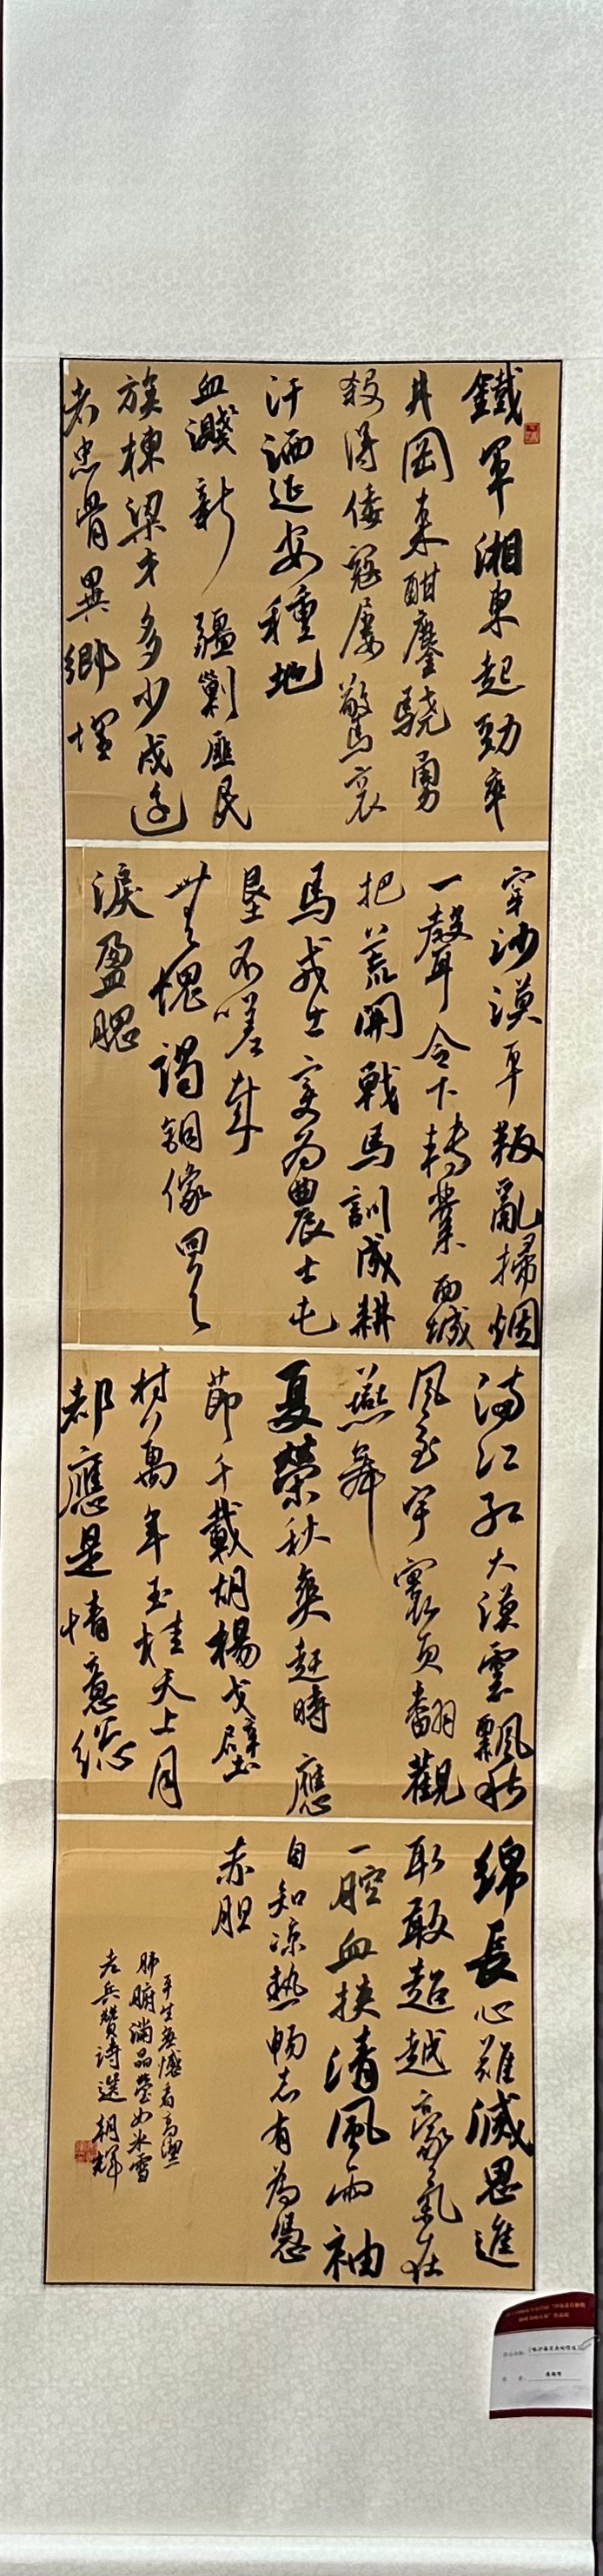 鐵軍湘東起勁率
井岡来酣鏖驍勇
殺得倭寇屡驚哀
汗洒延安種地
血濺新疆剿匪民
族棟梁才多少戍边
老忠骨異鄉埋
穿沙漠平叛亂掃烟
一聲令下轉業西域
把荒開戰馬訓成耕
馬戎士变为農士屯
墾不嗟歎
無愧謁銅像回回
淚盈腮
滿江紅大漠雲飄秋
風至宇寰頁翻觀
燕舞
夏榮秋爽赶時應
節千載胡楊戈壁
村萬年玉桂天上月
都應是情意總
綿長心難滅思進
取敢超越豪氣在
一腔血挾清風兩袖
自知凉熱畅志有為憑
赤胆
平生無憾看高潔
肺腑滿晶瑩如冰雪
老兵贊詩選朝輝